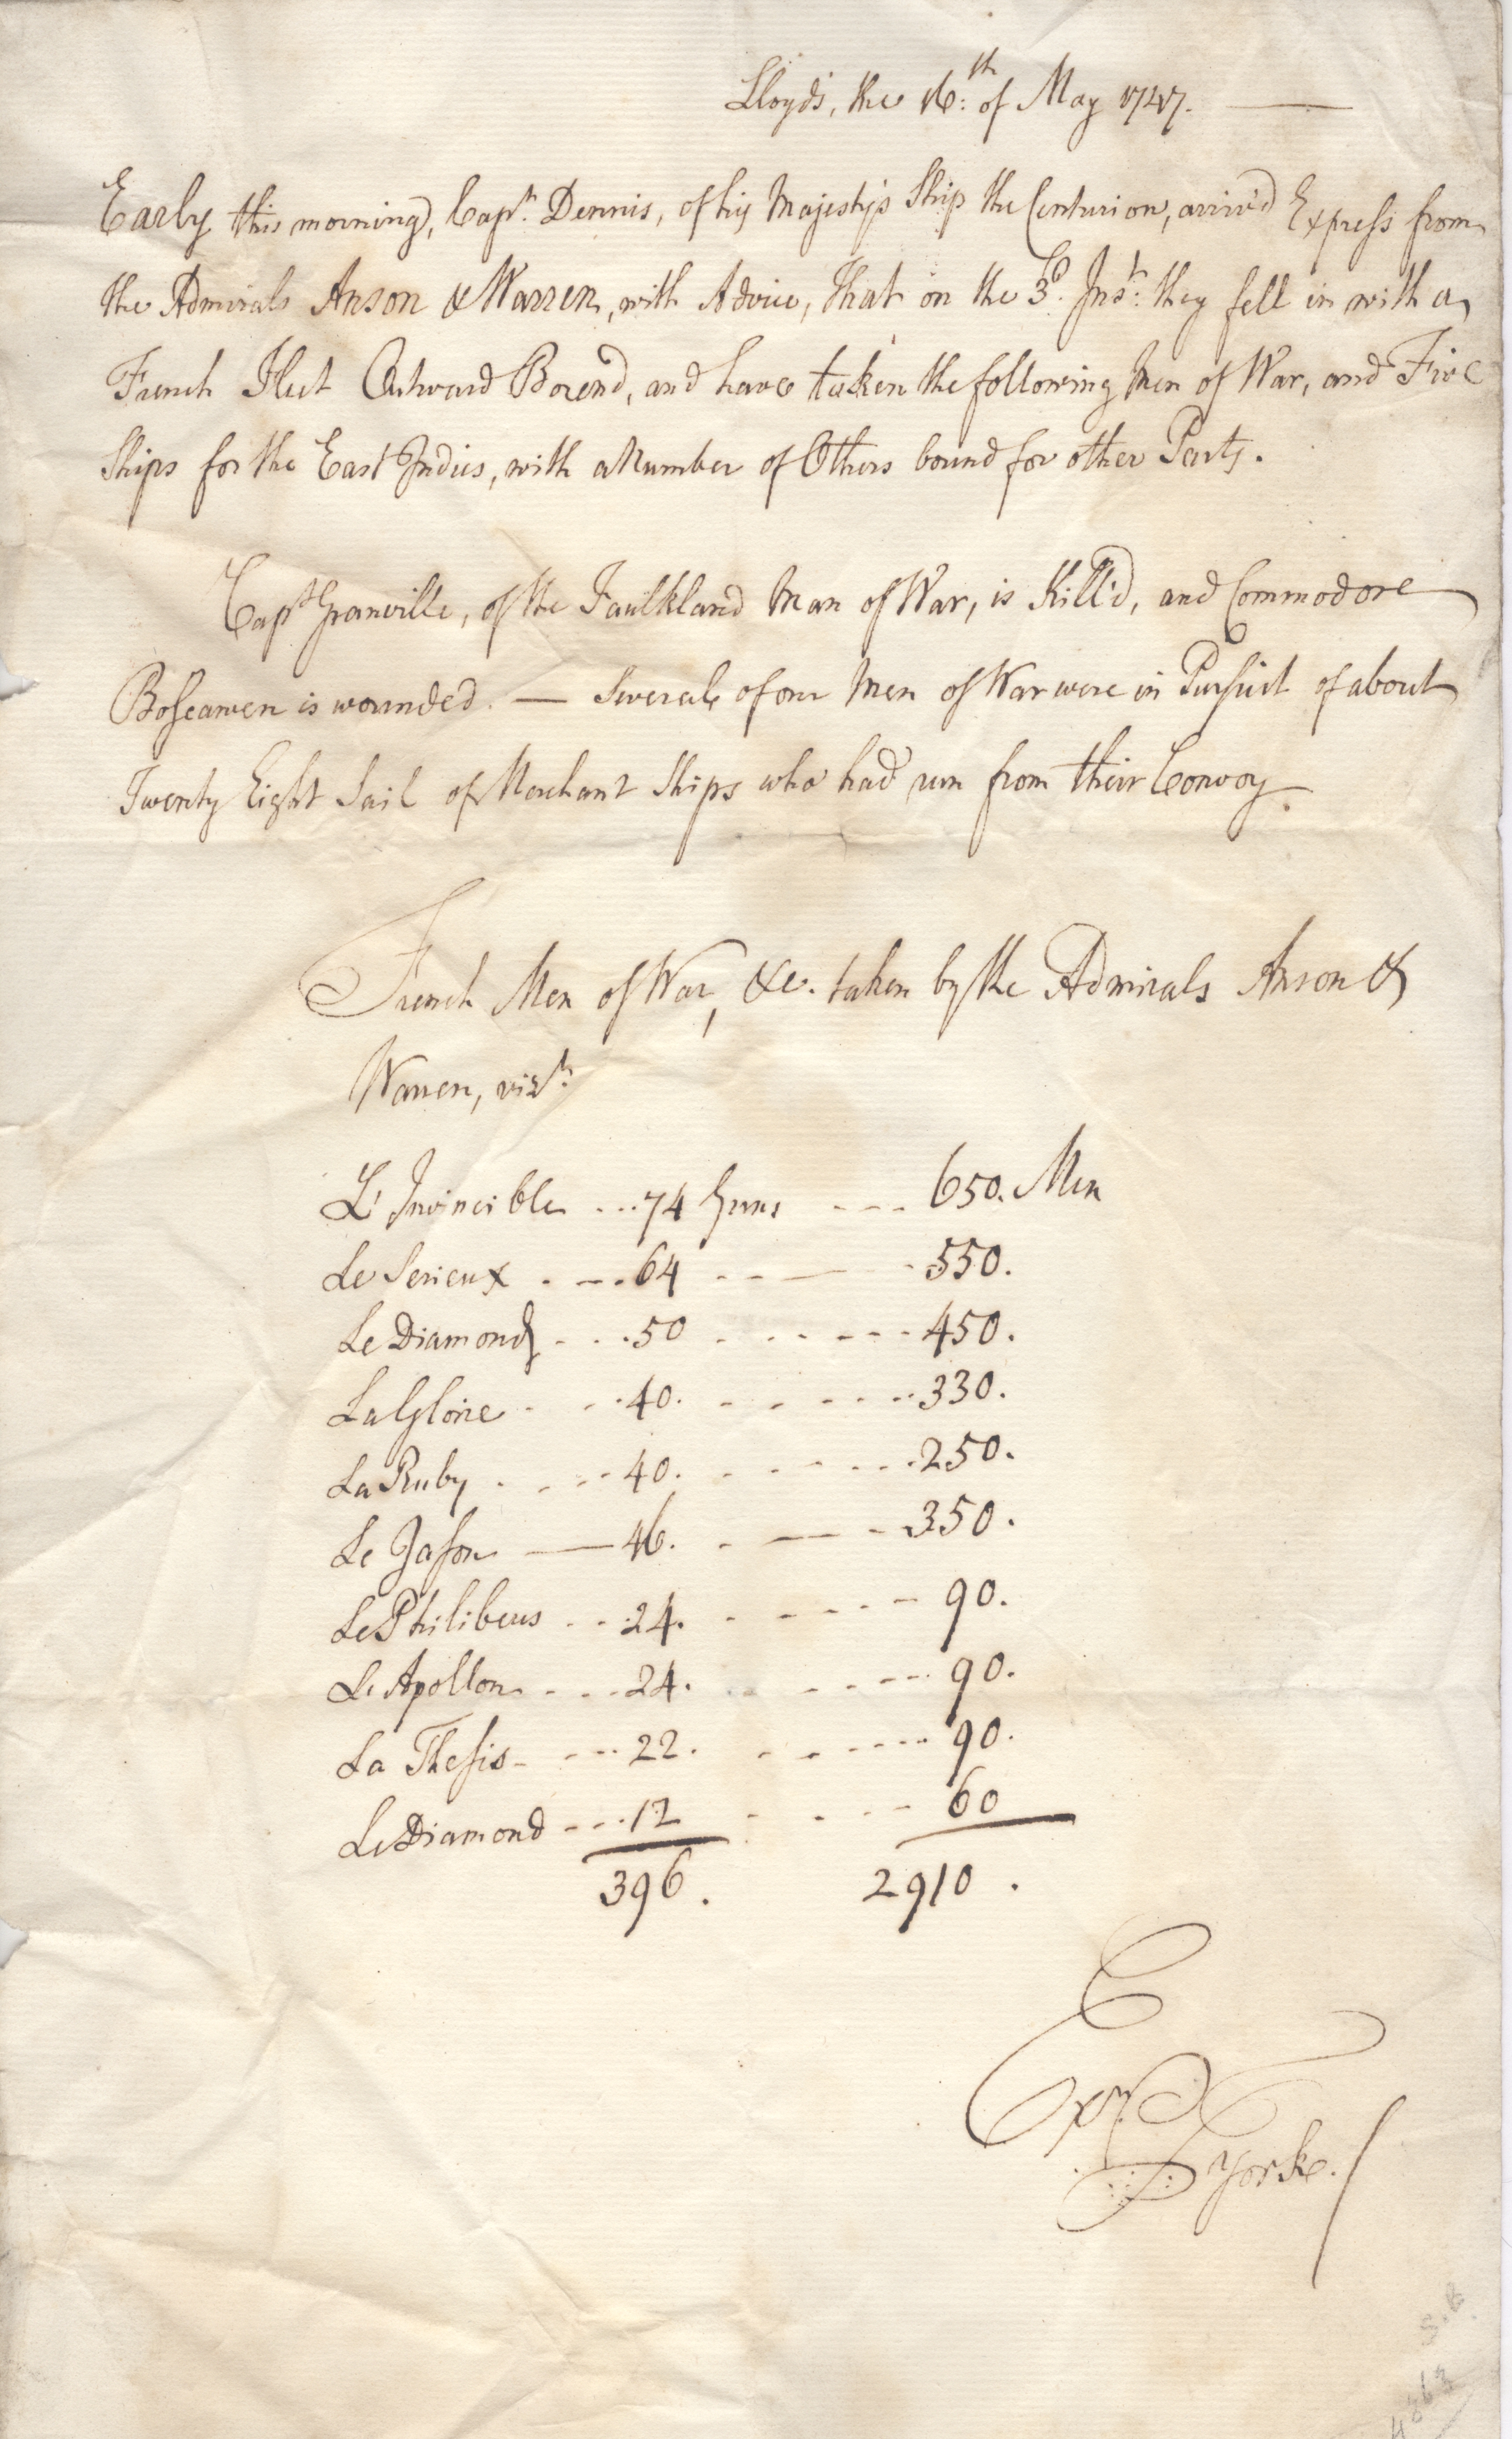 Lloyd's, the 16:th of May 1747.
Early this morning, Capt. Dennis, of his Majesty's Ship the Centurion, arriv'd Express from
the Admirals Anson & Warren, with Advice, that on the 3d. Inst: they fell in with a
French Fleet Outward Bound, and have taken the following Men of War, and Five
Ships for the East Indies, with a Number of Others bound for other Parts.
Capt Granville, of the Faulkland Man of War, is Kill'd, and Commodore
Boscawen is wounded. — Several of our Men of War were in Pursuit of about
Twenty Eight Sail of Merchant Ships who had run from their Convoy.
French Men of War, &c. taken by the Admirals Anson &
Warren, vizt.
L'Invincible ... 74 Guns --- 650. Men
Le Serieux . --. 64 -- — - 550.
Le Diamond - . . 50 . - . . - - - 450.
La Gloire . . . 40. . - . - - . . 330.
La Ruby . . - - 40. . . - . . - . 250.
Le Jason — 46. . — - 350.
Le Philibeus . . . 24. . - - . . - 90.
Le Apollon . - . . 24. . . - - - 90.
La Thesis - - - . 22. . . - - - - 90.
Le Diamond - - - . 12 . . - - 60
396. 2910 .
Yorke.
4863